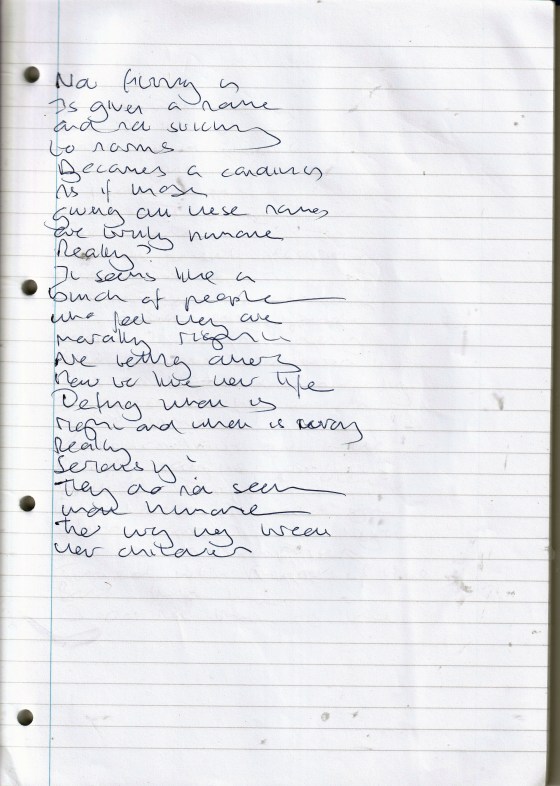 Not fitting in
Is given a name
and not sticking
to norms
Becomes a condition
As if those
giving all these names
are truly humane
Really?
It seems like a
bunch of people
who feel they are
morally right
Are telling others
How to live their life
Defing when is
right and when is wrong
Really
Seriously
They do not seem
more humane
The way they treat
their children